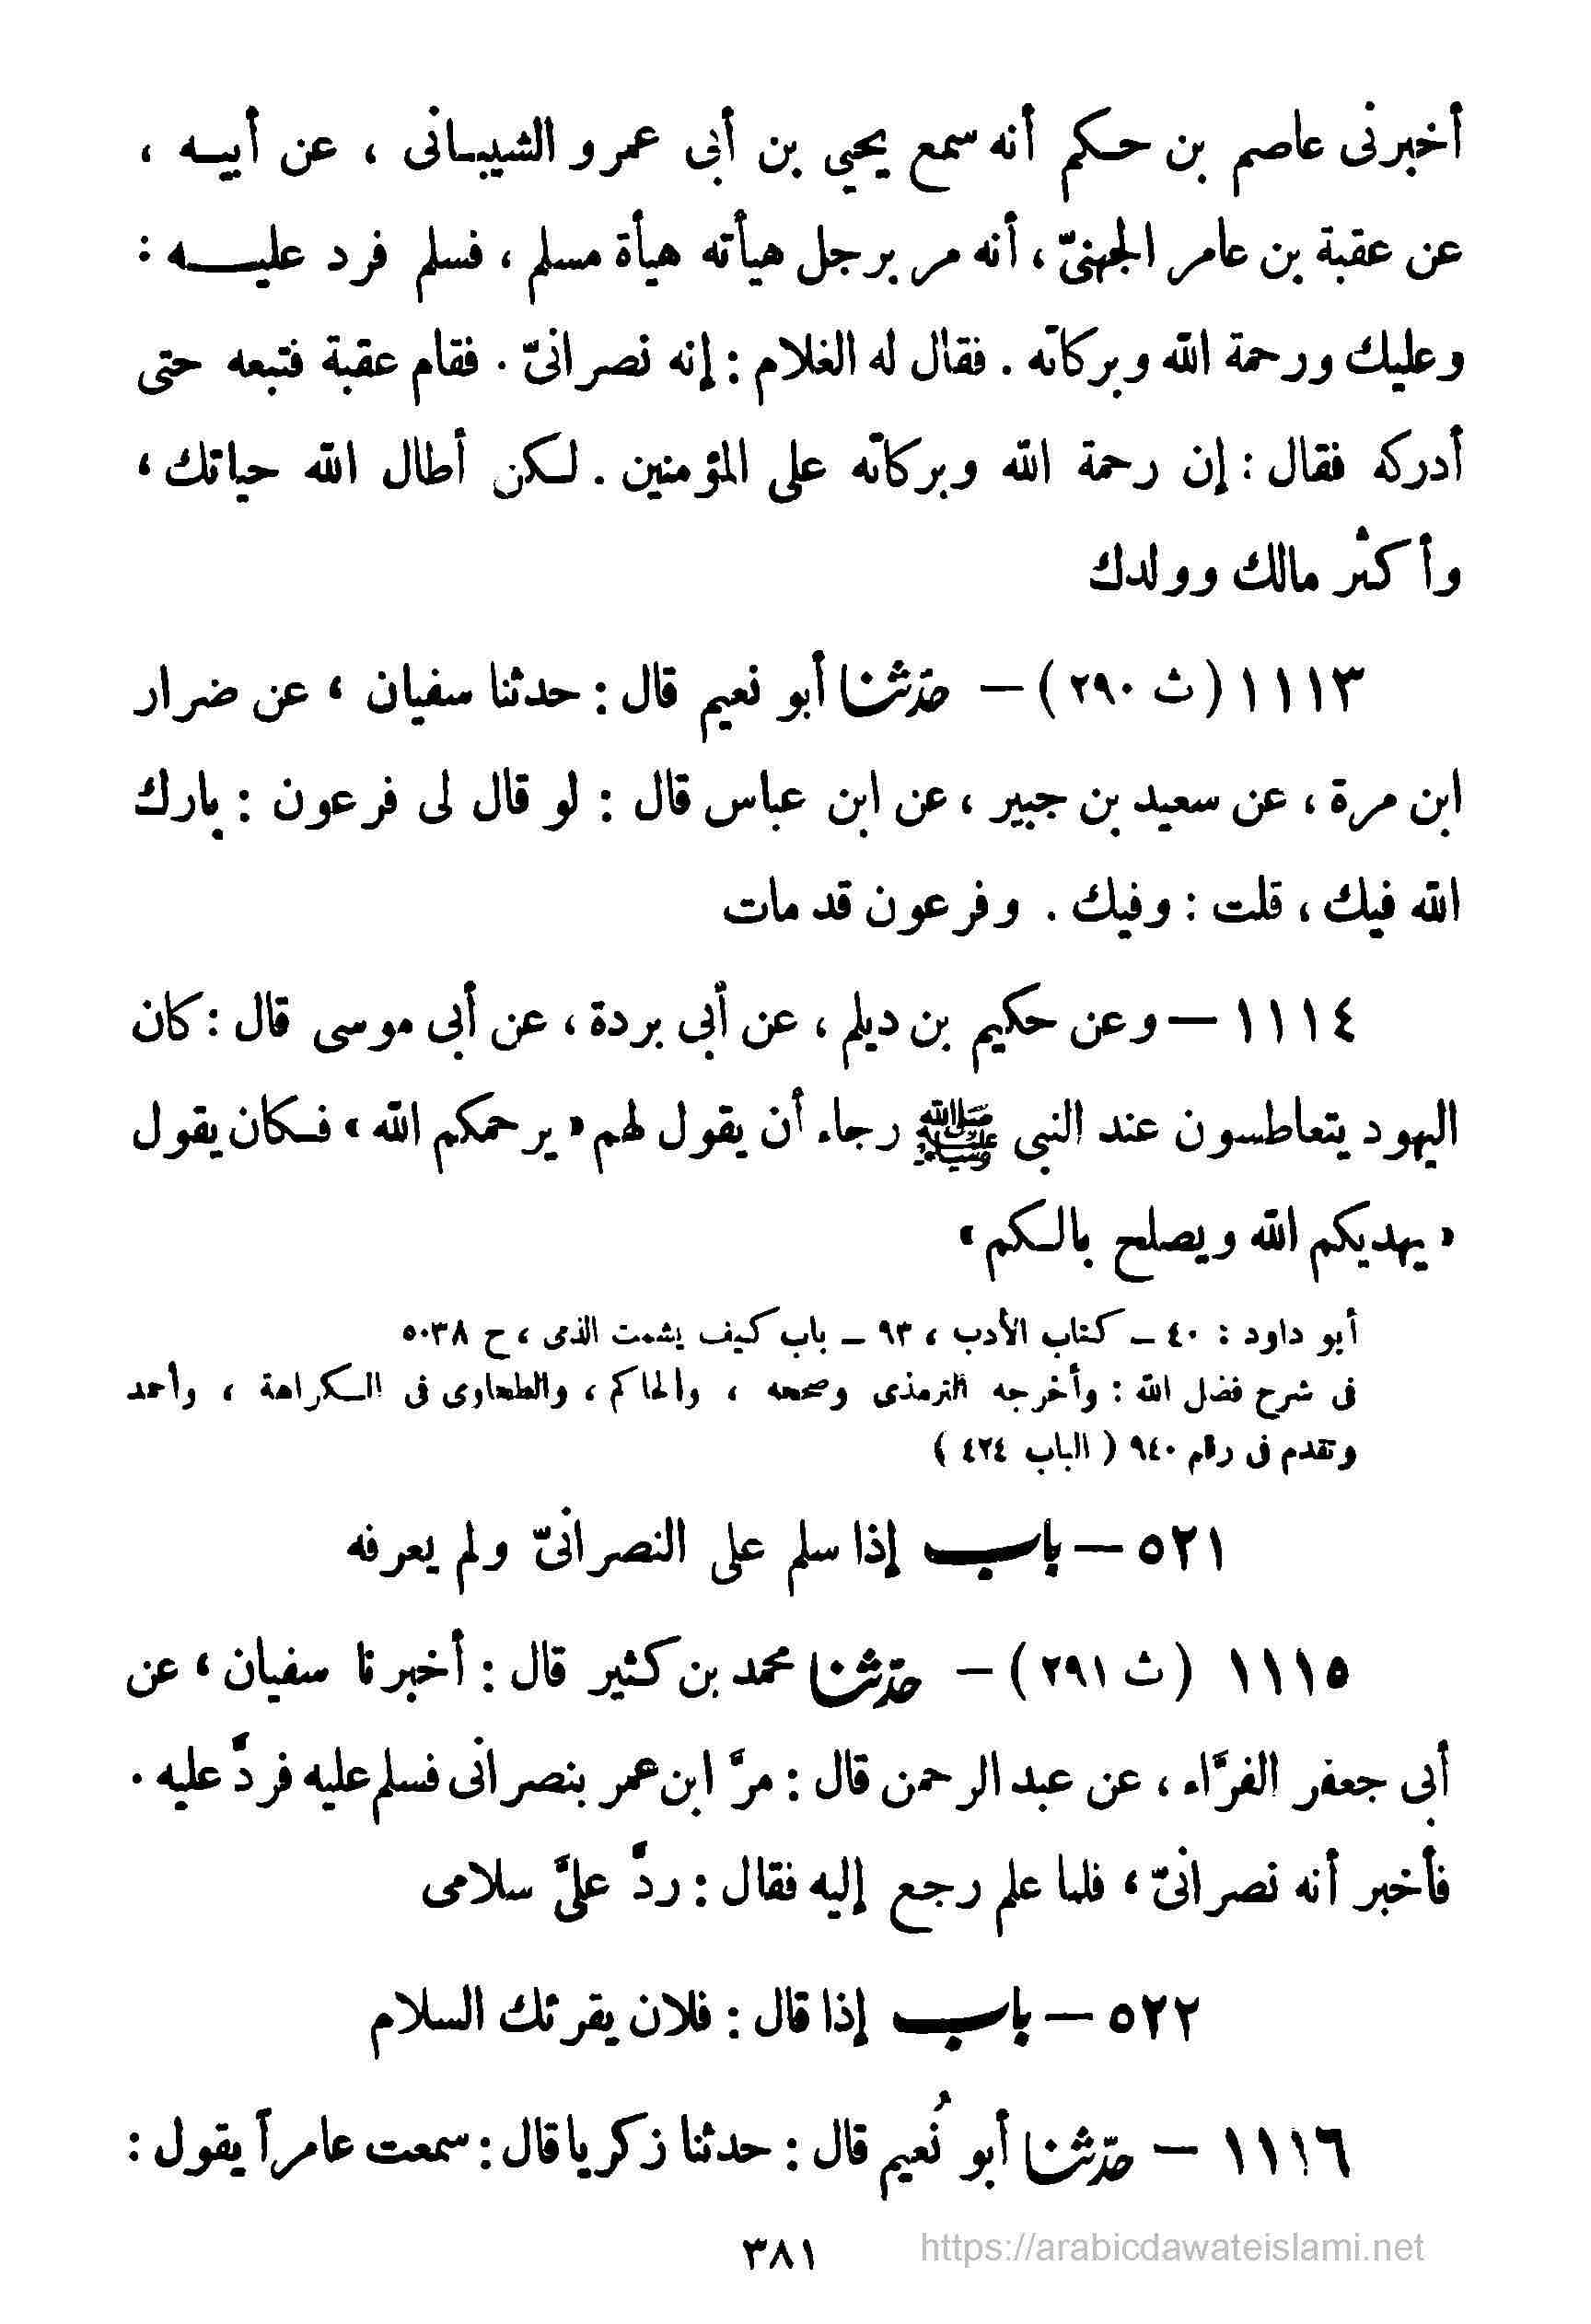 أخبرنى عاصم بن حكم أنه سمع يحيى بن أبى عمرو الشيبانى ، عن أبيه ،
عن عقبة بن عامر الجهنىّ ، أنه مر برجل هيأته هيأة مسلم ، فسلم فرد عليه :
وعليك ورحمة الله وبركاته . فقال له الغلام : إنه نصرانىّ . فقام عقبة فتبعه حتى
أدركه فقال : إن رحمة الله وبركاته على المؤمنين . لكن أطال الله حياتك ،
وأكثر مالك وولدك
١١١٣ ( ث ٢٩٠ ) – حدّثنا أبو نعيم قال : حدثنا سفيان ، عن ضرار
ابن مرة ، عن سعيد بن جبير ، عن ابن عباس قال : لو قال لى فرعون : بارك
الله فيك ، قلت : وفيك . وفرعون قد مات
١١١٤ – وعن حكيم بن ديلم ، عن أبى بردة ، عن أبى موسى قال : كان
اليهود يتعاطسون عند النبى ﷺ رجاء أن يقول لهم « يرحمكم الله » فكان يقول
« يهديكم الله ويصلح بالكم »
أبو داود : ٤٠ – كتاب الأدب ، ٩٣ – باب كيف يشمت الذمى ، ح ٥٠٣٨
فى شرح فضل الله : وأخرجه الترمذى وصححه ، والحاكم ، والطحاوى فى الكراهة ، وأحمد
وتقدم فى رقم ٩٤٠ ( الباب ٤٢٤ )
٥٢١ – باب إذا سلم على النصرانىّ ولم يعرفه
١١١٥ ( ث ٢٩١ ) – حدّثنا محمد بن كثير قال : أخبرنا سفيان ، عن
أبى جعفر الفرَّاء ، عن عبد الرحمن قال : مرَّ ابن عمر بنصرانى فسلم عليه فردَّ عليه .
فأخبر أنه نصرانىّ ، فلما علم رجع إليه فقال : ردَّ علىَّ سلامى
٥٢٢ – باب إذا قال : فلان يقرئك السلام
١١١٦ – حدّثنا أبو نُعيم قال : حدثنا زكريا قال : سمعت عامراً يقول :
٣٨١
https://arabicdawateislami.net